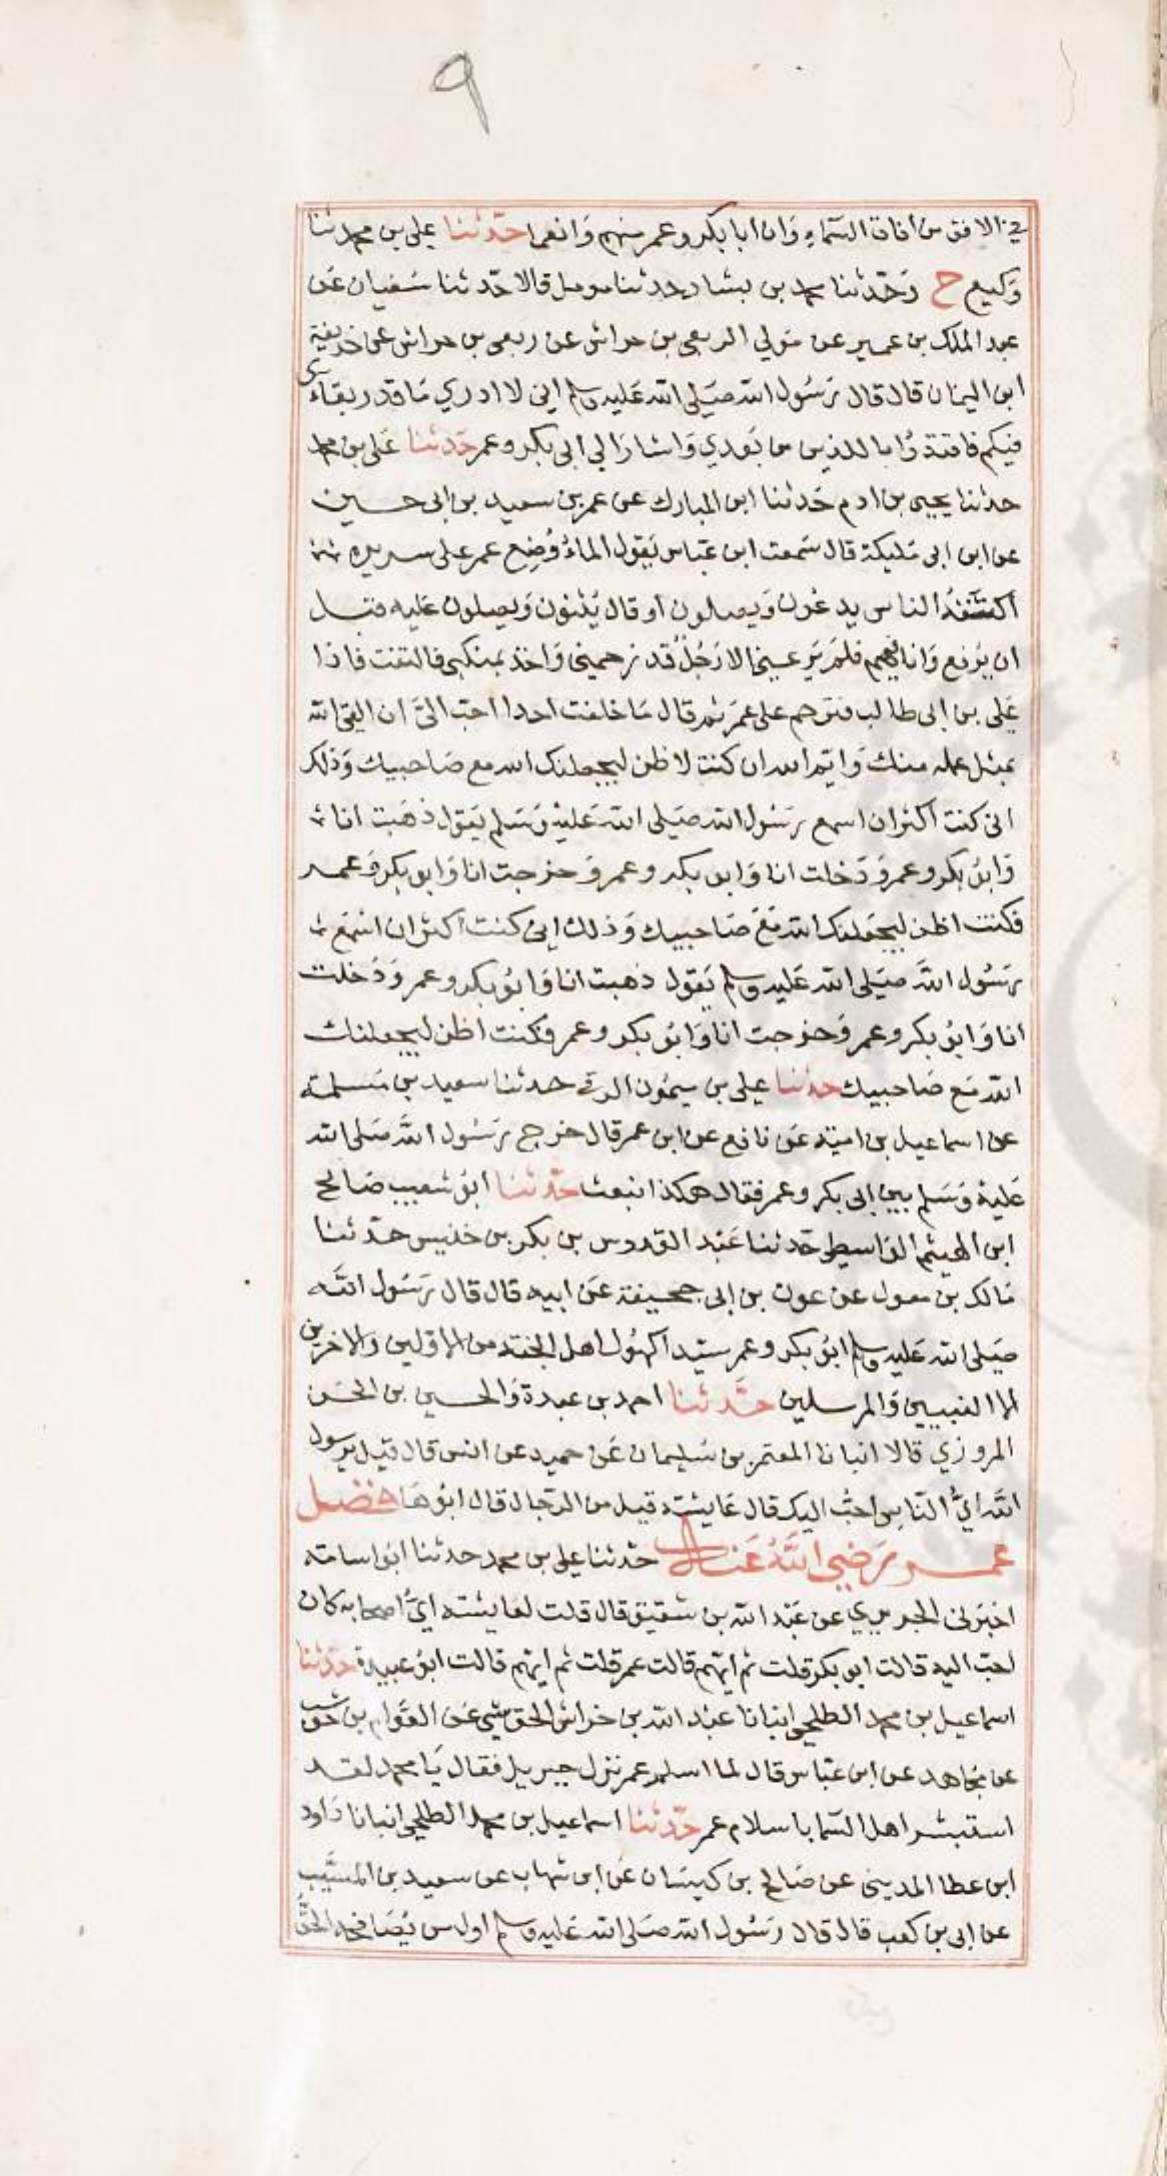 ٩
في الافق من افاق السّماءِ وَان ابا بكر وعمر منهم وَانعما حدّثنا علي بن محمد ثنا
وَكيع ح وَحَدّثنا محمد بن بشار حدثنا مومل قالا حَدثنا سُفيان عَن
عبد الملك بن عمير عن مَولي الربعي بن حراش عن ربعي بن حراش عن حذيفة
ابن اليمان قال قال رَسُول الله صَلى الله عَليه وسلم اني لا ادري مَا قدر بقاءى
فيكم فاقتدُوا باللذين من بَعدي وَاشارَ الي ابى بكر وعمر حَدثنا عَلي بن محمد
حدثنا يحيى بن ادم حَدثنا ابن المبارك عن عمر بن سعيد بن ابى حسين
عن ابن ابى مَليكة قال سَمعت ابن عَباس يَقول لماءُ وُضِع عمر على سريره
اكتَنَفَهُ الناس يدعُون وَيصلون او قال يُثنون وَيصلون عَليه قبل
ان يرُفع وَانا فيهم فلمَ يَرعني الا رَجُلٌ قد زحمني وَاخذ بمنكبى فالتفت فاذا
عَلي بن ابى طالب فترحم على عمرَ ثم قال مَا خلفت احدا احبّ اليَّ ان القى الله
بمثل عمله منك وَايم الله ان كنت لاظن ليجعلنك الله مع صَاحبيك وَذلك
اني كنت اكثر ان اسمع رَسُول الله صَلى الله عَليْه وَسَلم يَقول ذهَبت انا
وَابوُ بكر وعمر وَدَخلت انا وَابو بكر وعمر وَخرجت انا وَابو بكر وَعمر
فكنت اظن ليجَعلنك الله مَعَ صَاحبيك وَذلك اني كنت اكثر ان اسْمَع
رَسُول اللهَ صَلى الله عَليه وسلم يَقول ذهبت انا وَابوُ بكر وعمر وَدَخلت
انا وَابوُ بكر وعمر وَخرجت انا وَابوُ بكر وعمر فكنت اظن ليجعلنك
الله مَع صَاحبيك حدثنا علي بن ميمُون الرقى حدثنا سعيد بن مَسلمة
عن اسماعيل بن امية عَن نافع عن ابن عمر قال خرج رَسُول اللهَّ صَلى الله
عَليهْ وَسَلم بين ابى بكر وعمر فقال هكذا نبعث حَدّثنا ابوُ شعيب صَالح
ابن الهيثم الوَاسطي حَدثنا عَبْد القدوس بن بكر بن خنيس حدّثنا
مَالك بن مغول عن عون بن ابى جحيفة عَن ابيه قال قال رَسُول اللَّه
صَلى الله عَليه وسلم ابوُ بكر وعمر سيّدا كهُول اهل الجنة من الاوّلين والاخرين
الا النبيين وَالمرسلين حَدَّثنا احمد بن عبدة وَالحسين بن الحسَن
المروزي قالا انبانا المعتمر بن سُليمان عَن حميد عن انس قال قيل يرسول
اللَّه ايُّ النّاس احبّ اليك قال عَايشة قيل من الرّجال قال ابوُهَا فضل
عمر رَضي اللَّهُ عَنه حَدثنا علي بن محمد حدثنا ابو اسامة
اخبَرني الجريري عن عَبْد الله بن شقيق قال قلت لعايشة ايُّ اصحابه كان
احبّ اليه قالت ابو بكر قلت ثم ايّهم قالت عمر قلت ثم ايّهم قالت ابوُ عبيدة حَدّثنا
اسماعيل بن محمد الطلحي انبانا عبْد الله بن خراش الحوشي عَن العَوّام بن حَوشب
عن مجاهد عن ابن عَباس قال لما اسلم عمر نزل جبريل فقال يَا محمد لقد
استبشر اهل السّما باسلام عمر حَدّثنا اسماعيل بن محمد الطلحي انبانا دَاود
ابن عطا المديني عن صَالح بن كيسَان عَن ابن شهاب عن سعيد بن المسَيَّب
عن ابى بن كعب قال قال رسُول الله صَلى الله عَليه وسلم اول من يُصَافحه الحَقُّ